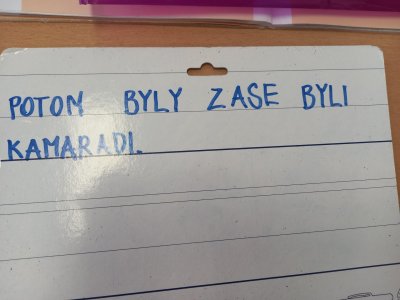 POTOM BYLY ZASE BYLI
KAMARADI.